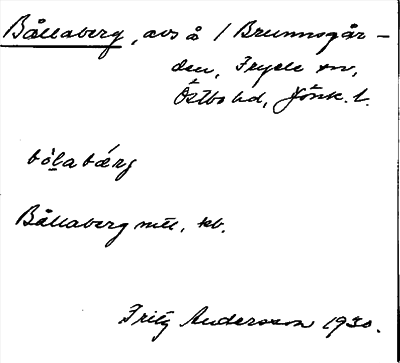 Bållaberg, avs å / Brunnsgår-
den, Fryele sn,
Östbo hd, Jönk. l.
bo̱l̥abǽrg
Bållaberg mtl, kb.
Fritz Andersson 1930.